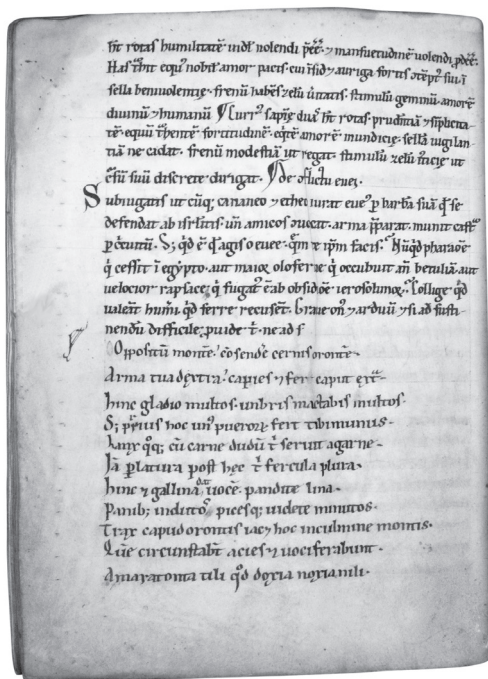 ht rotas humilitatē uidł nolendi p̄eē. ⁊ mansuetudinē uolendi p̱deē.
Has t̄hit equ nobił amor pacis. cui īsid& auriga fortis ɔtēpt sui ī
sella beniuolentie. frenū habēs zelū ūitatis. stimulū geminū amorē
diuinū ⁊ humanū ¶ Curr sapiē dua ht rotas. prudētiā ⁊ sīplicita
tē. equū t̄hentē fortitudinē. eq̄tē amorē mundicie. sellā uigilan
tiā ne cadat. frenū modestiā ut regat. stimulū zelū ut
cursū suū discrete dirigat. ¶ De ɔflictu euei.
Subiugatis ut cūq; cananeo ⁊ etheo iurat eue p barbā suā qđ se
defendat ab isrłitis. uñ amicos ɔuocat. arma p̄parat. munit castr
p circuitū. S; qđ ē qđ agis o euee. qm̄ te ip̄m facis. Nūqđ pharaoē
q̇ cessit ī egypto. aut maior oloferne q̇ occubuit añ betuliā. aut
uelocior rapsace; q̇ fugat ē ab obsidiōe ierosolimor. Collige qđ
ualeāt humi. qđ ferre recuset. Graue on ⁊ arduū ⁊ si ad susti
nendū difficile; puide t ne ad s
Oppositū monte ɔsende cernis oronte.
Arma tua dextra capies ⁊ fer caput extra.
hinc gladio multos umbris mactabis multos.
S; p̄eius hoc un puerorz fert tibi munus.
Lanx qq; cū carne dudū t seruit agarne.
Jā p latura post hec t fercula plura.
hinc ⁊ gallina dat uocē. pandite lina.
Panib; induto picesq; uidete minutos.
Trax capud orontis iac& hoc in culmine montis.
Quē circūstabt acies ⁊ uociferabunt.
Amaratonta tili qđ doxia noxia nili.